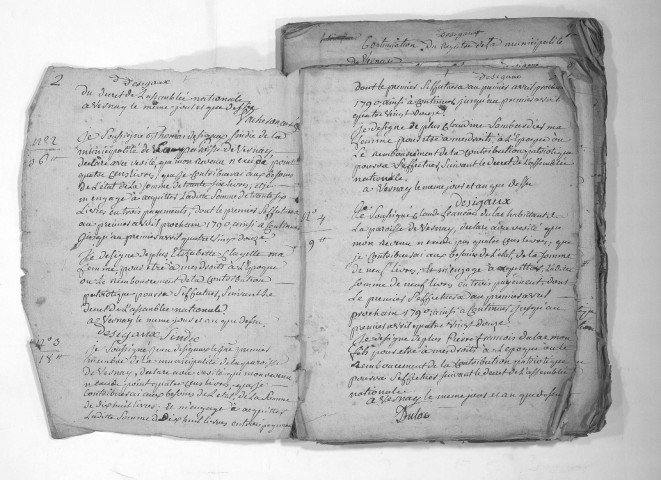 desigaux
Continuation du registre de la municipalité
de Vernay
2
desigaux
du decret de Lassemblée nationale
a Vernay le meme jour et an que dessus
n° 2
36
Je Soussigné Thomas desigaux Sindic de la
municipalité de paroisse de Vernay
declare avec verité, que mon Revenu n'excede point
quatre Cens livres, que je Contribuerai aux besoins
De L'etat de la Somme de trente six livres, et je
m'engage a acquitter Laditte Somme de trente six
Livres en trois payements, dont le premier S'effectuera
au premier avril prochain 1790 ainsi a Continuer
Jusqu'au premier avril quatre vingt douze.
Je designe de plus Elizabette ma
femme, pour etre a mes droits a L'epoque
ou le Remboursement de la Contribution
patriotique poura S'effectuer, Suivant le
decret de L'assemblée nationale
a Vernay le meme jour et an que dessus
desigaux Sindic
n° 3
18
Je Soussigné desigaux
membre de la municipalité de la paroisse
de Vernay, declare avec verité que mon revenu
n'excede point quatre Cens livres, que je
Contribuerai aux besoins de L'etat, de la Somme
de dix huit livres, et m'engage a acquitter
Laditte Somme de dix huit livres en trois payements
desigaux
dont le premier S'effectuera au premier avril prochain
1790 ainsi a Continuer jusqu'au premier avril
quatre vingt douze.
Je designe de plus Claudine ma
femme pour etre a mes droits, a L'epoque ou
Le Remboursement de la Contribution patriotique
poura S'effectuer, Suivant le decret de L'assemblée
nationale.
a Vernay le meme jour et an que dessus
desigaux
n° 4
9
Je Soussigné Claude francois dulac habitant de
la paroisse de Vernay, declare avec verité que
mon Revenu n'excede pas quatre Cens livres, que
je Contribuerai aux besoins de L'etat, de la Somme
de neuf livres, et m'engage a acquitter Laditte
Somme de neuf livres en trois payements, dont
Le premier S'effectuera au premier avril
prochain 1790, ainsi a Continuer, Jusqu'au
premier avril quatre vingt douze.
Je designe de plus Pierre francois dulac mon
fils pour etre a mes droits, a L'epoque ou le
Remboursement de la Contribution patriotique
poura S'effectuer suivant le decret de l'assemblée
nationale
a Vernay le meme jour et an que dessus
Dulac